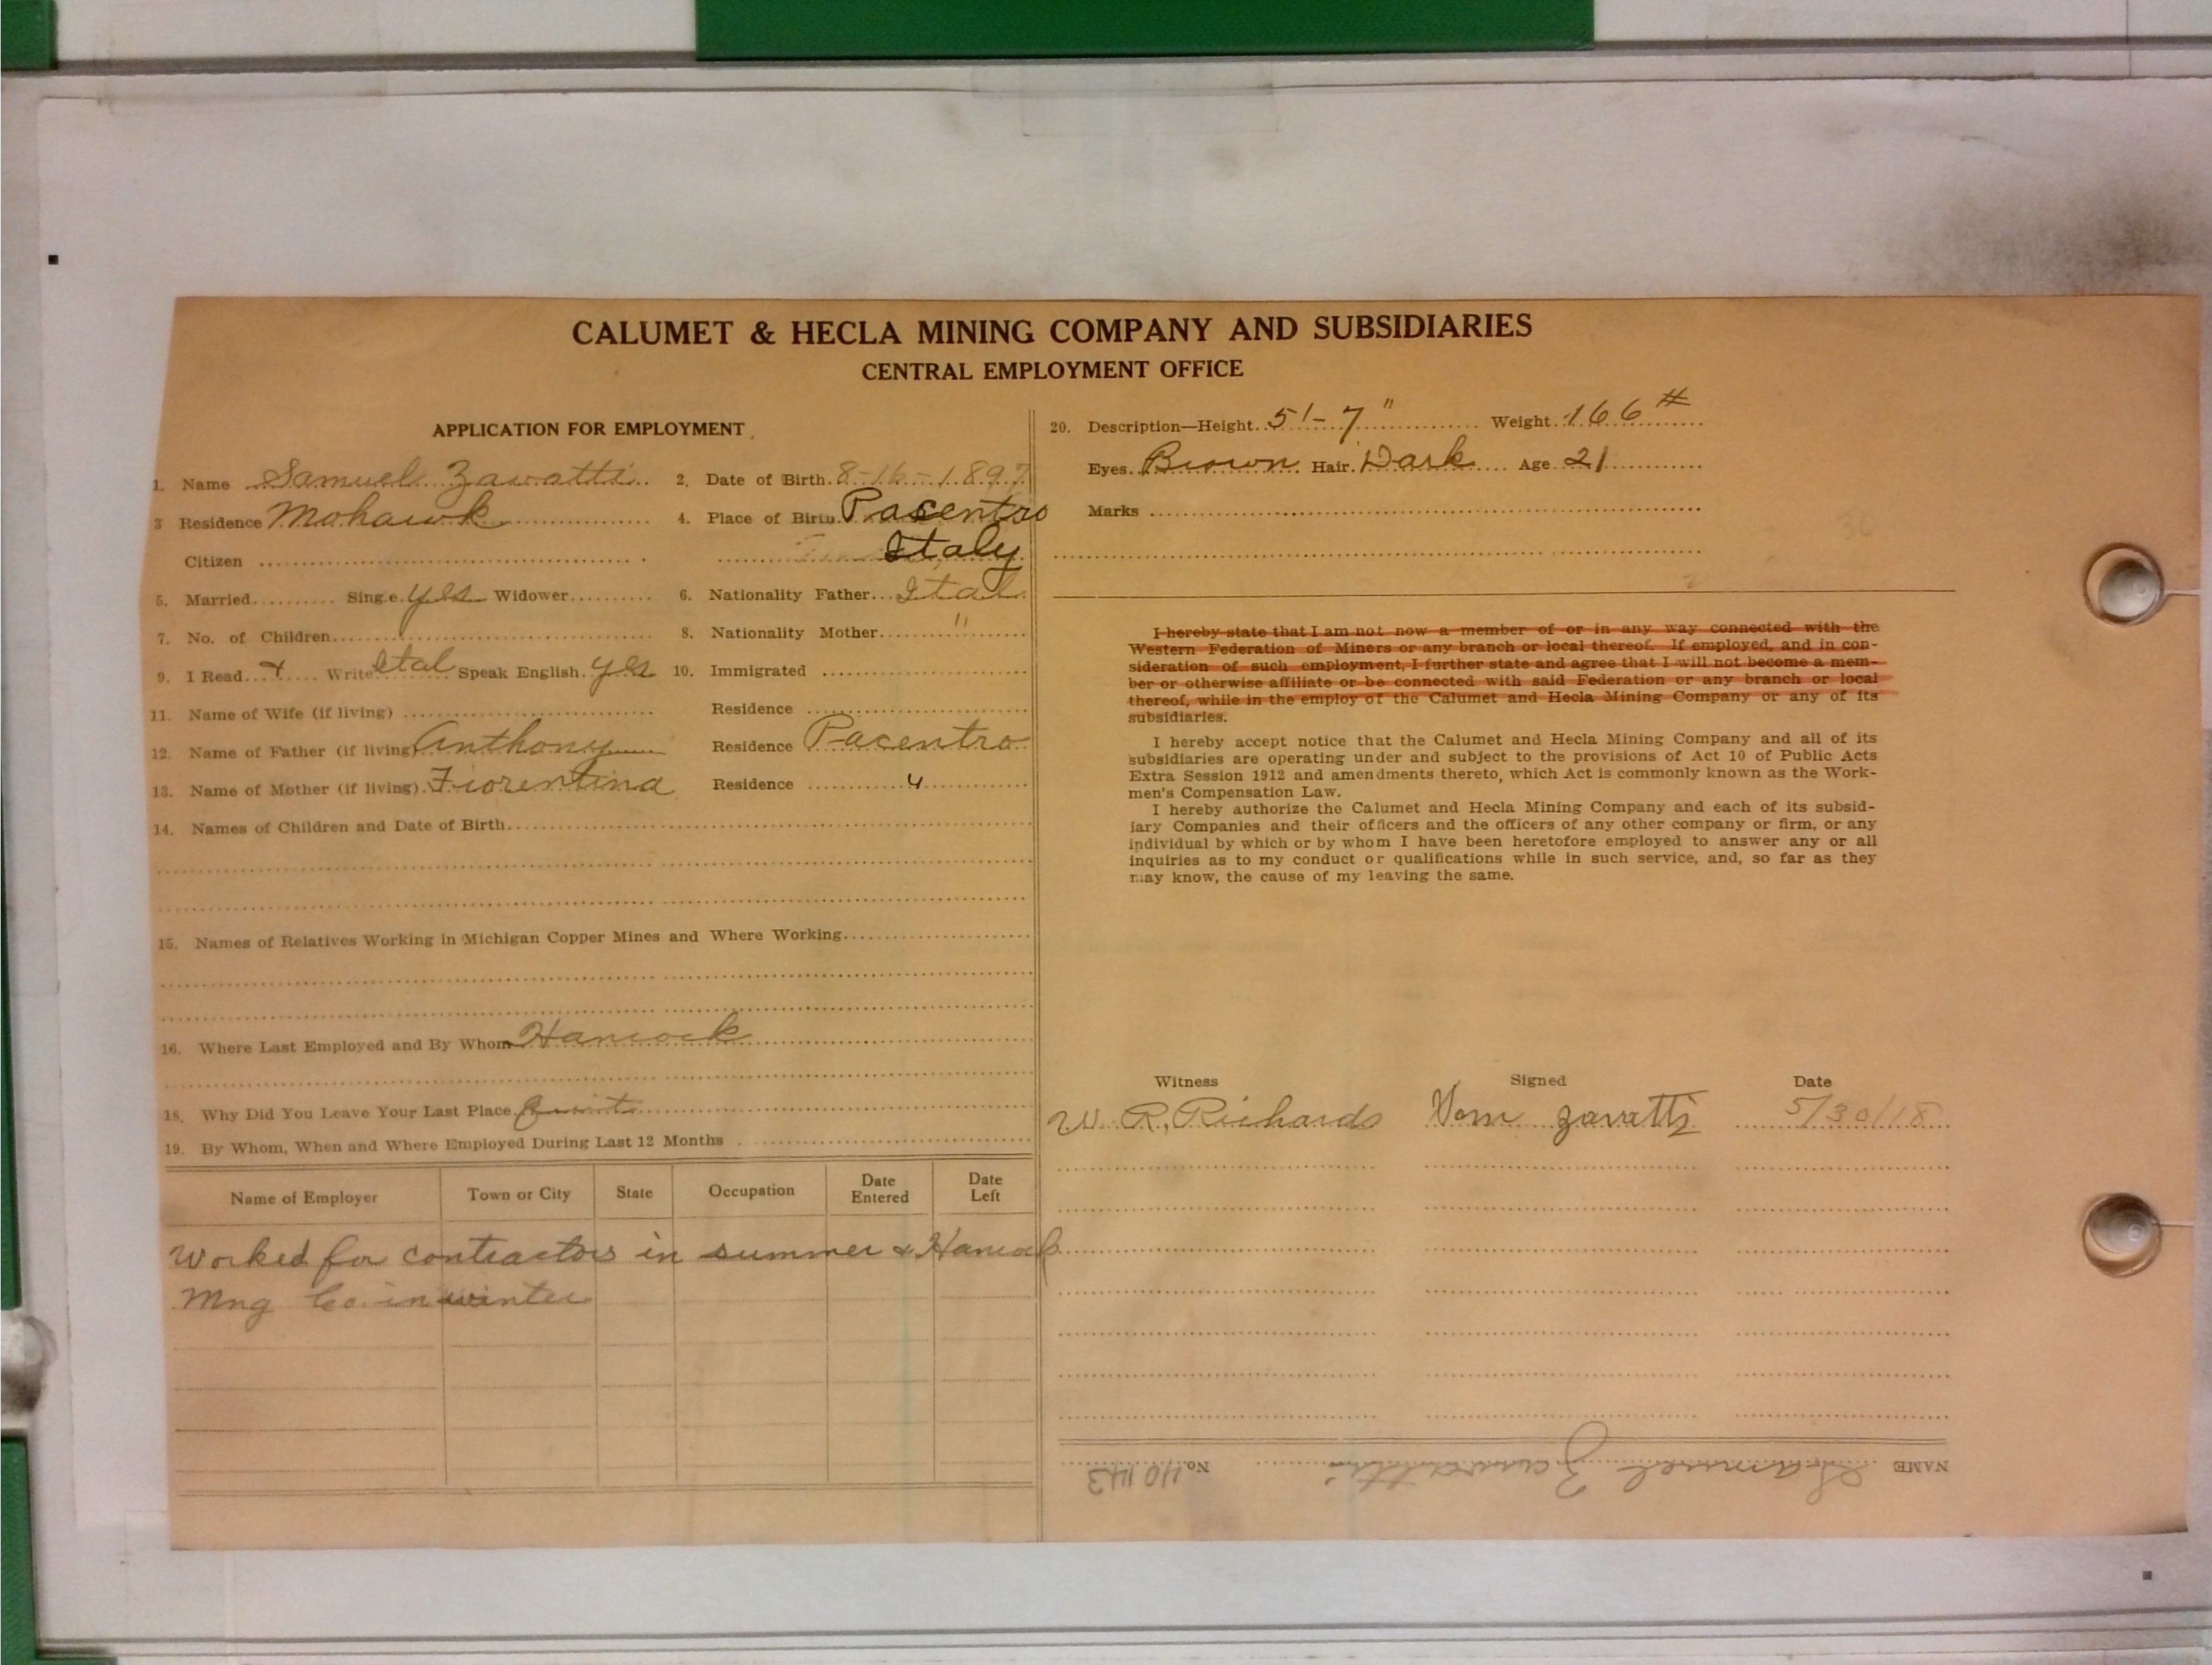 CALUMET & HECLA MINING COMPANY AND SUBSIDIARIES
CENTRAL EMPLOYMENT OFFICE
APPLICATION FOR EMPLOYMENT
1. Name Samuel Zavatti
2. Date of Birth 8-16-1897
3 Residence Mohawk
4. Place of Birth Pacentro
Citizen
Italy
5. Married Single yes Widower
6. Nationality Father Ital
7. No. of Children
8. Nationality Mother "
9. I Read + Write Ital Speak English yes
10. Immigrated
11. Name of Wife (if living)
Residence
12. Name of Father (if living) Anthony
Residence Pacentro
13. Name of Mother (if living) Fiorentina
Residence "
14. Names of Children and Date of Birth
15. Names of Relatives Working in Michigan Copper Mines and Where Working
16. Where Last Employed and By Whom Hancock
18. Why Did You Leave Your Last Place Quit
19. By Whom, When and Where Employed During Last 12 Months
Name of Employer Town or City State Occupation Date Entered Date Left
Worked for contractors in summer & Hancock
Mng Co. in winter
20. Description—Height 5'-7" Weight 166#
Eyes Brown Hair Dark Age 21
Marks
I hereby state that I am not now a member of or in any way connected with the
Western Federation of Miners or any branch or local thereof. If employed, and in con-
sideration of such employment, I further state and agree that I will not become a mem-
ber or otherwise affiliate or be connected with said Federation or any branch or local
thereof, while in the employ of the Calumet and Hecla Mining Company or any of its
subsidiaries.
I hereby accept notice that the Calumet and Hecla Mining Company and all of its
subsidiaries are operating under and subject to the provisions of Act 10 of Public Acts
Extra Session 1912 and amendments thereto, which Act is commonly known as the Work-
men's Compensation Law.
I hereby authorize the Calumet and Hecla Mining Company and each of its subsid-
iary Companies and their officers and the officers of any other company or firm, or any
individual by which or by whom I have been heretofore employed to answer any or all
inquiries as to my conduct or qualifications while in such service, and, so far as they
may know, the cause of my leaving the same.
Witness Signed Date
W. R. Richards zavatti 5/30/18
NAME Samuel Zavatti No. 40143